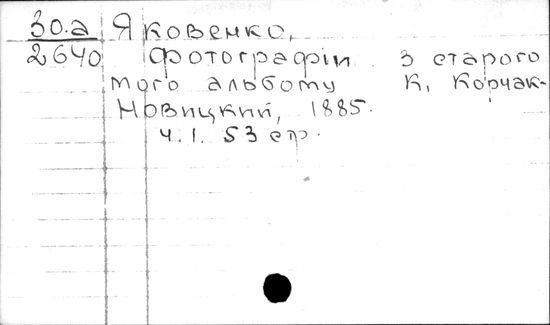 30.а Яковенко,
2640 Фотографіи з старого
мого альбому К, Корчак-
Новицкий, 1885.
ч. 1. 53 стр.